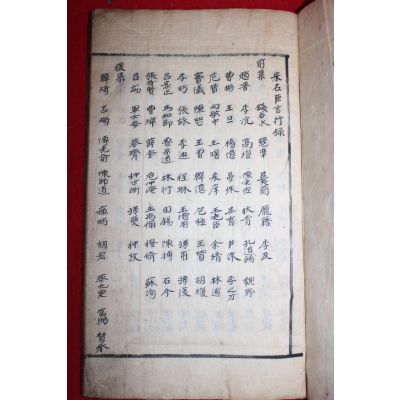 名臣言行録
前集
錢若水 寇準 龐籍 李及
趙普 李沆 高瓊 陳堯佐 狄青 孔道輔 魏野
曹彬 王旦 楊億 晏殊 吳育 尹洙 李之才
范質 向敏中 王曙 宋庠 王堯臣 余靖 林逋
竇儀 陳恕 王曾 韓億 包拯 王質 胡瑗
李昉 張詠 李迪 程琳 王德用 孫甫 孫復
呂蒙正 馬知節 魯宗道 杜衍 田錫 陳摶 石介
張齊賢 曹瑋 薛奎 范仲淹 王禹偁 穆脩 蘇洵
呂端 畢士安 蔡齊 种世衡 孫奭 种放
後集
韓琦 呂誨 傅堯俞 陳師道 胡宿 富弼